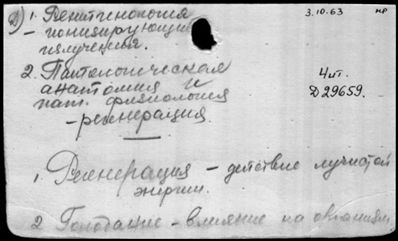 2) 1. Рентгенология
3.10.63 нр
- ионизирующие
излучения.
2. Патологическая
анатомия и
4 ит.
пат. физиология
Д29659.
- регенерация
1. Регенерация - действие лучистой
энергии.
2 Голодание - влияние на организм